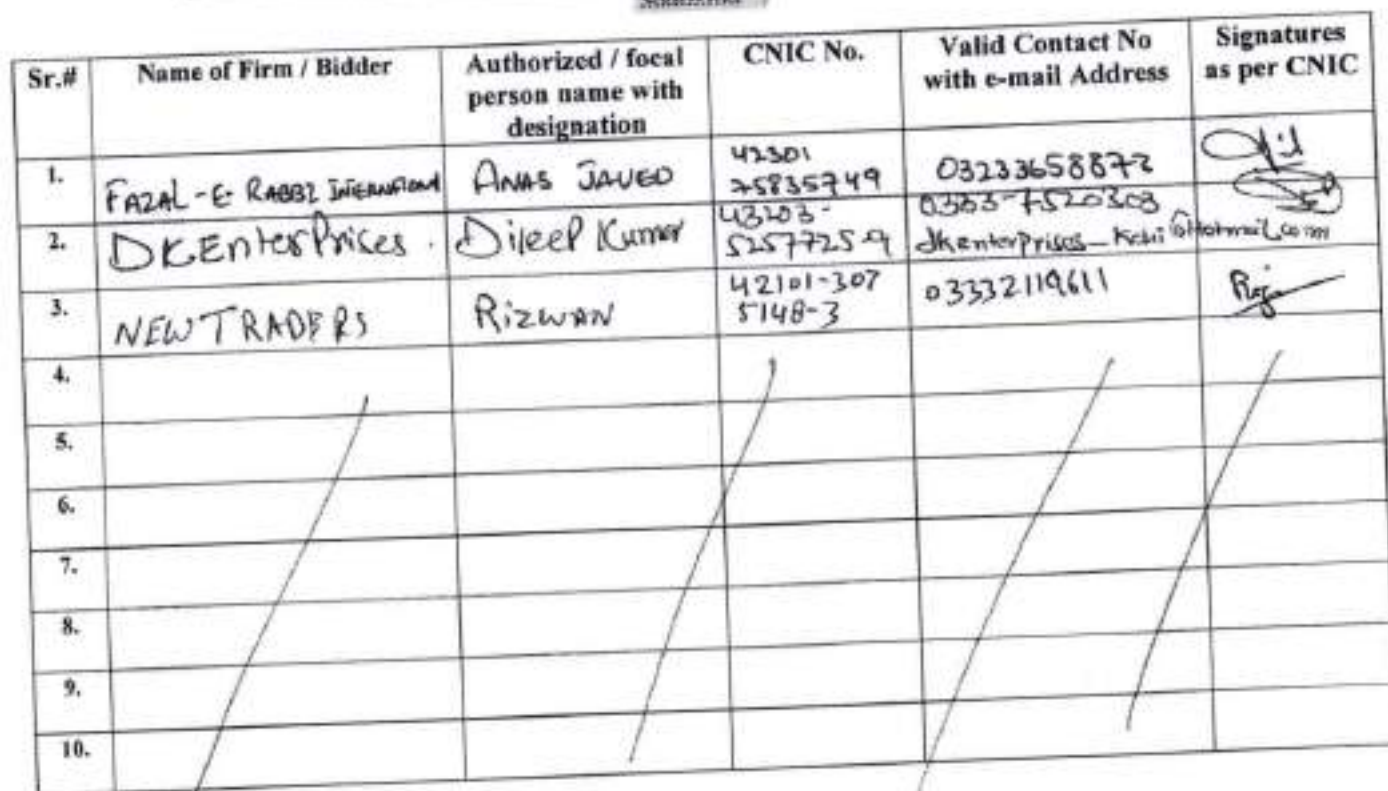 Sr.#
Name of Firm / Bidder
Authorized / focal
person name with
designation
CNIC No.
Valid Contact No
with e-mail Address
Signatures
as per CNIC
1.
FAZAL-E-RABBI INTERNATIONAL
ANAS JAVED
42301
75835749
03233658872
2.
DKEnterPrises.
DileeP Kumar
43203-
5257725-9
0333-7520303
dkenterprises_Kchi@Hotmail.com
3.
NEW TRADERS
RizWAN
42101-307
5148-3
03332119611
4.
5.
6.
7.
8.
9.
10.